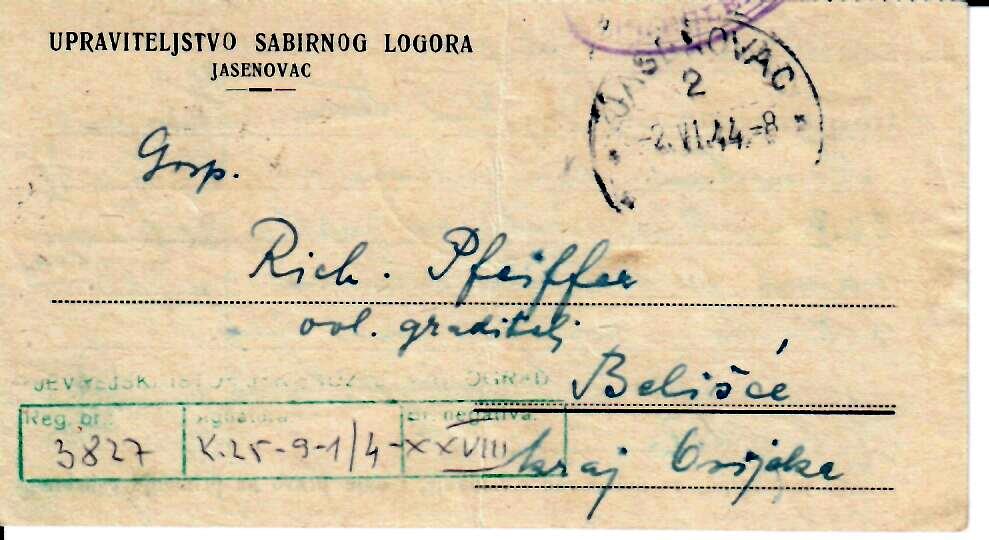 UPRAVITELJSTVO SABIRNOG LOGORA
JASENOVAC
JASENOVAC
2
-2.VI.44.-8
Gosp.
Rich. Pfeiffer
ovl. graditelj
Belišće
kraj Osijeka
JEVREJSKI ISTORIJSKI MUZEJ BEOGRAD
Reg. br.: signatura: br. negativa:
3827 K.25-9-1/4-XXVIII